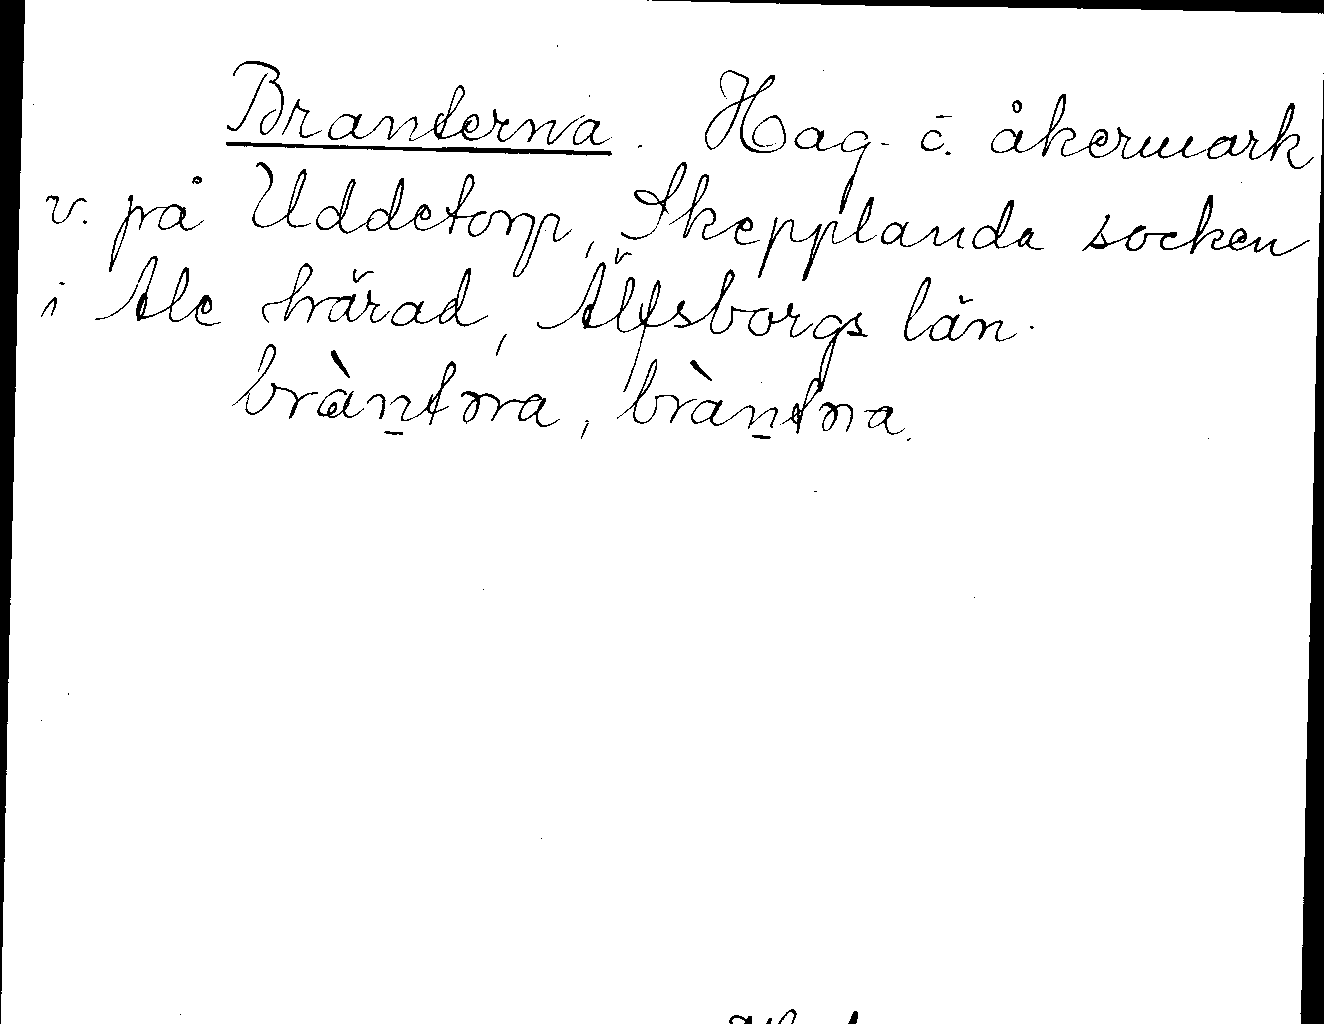 Branterna. Hag- o. åkermark
v. på Uddetorp, Skepplanda socken
i Ale härad, Älfsborgs län.